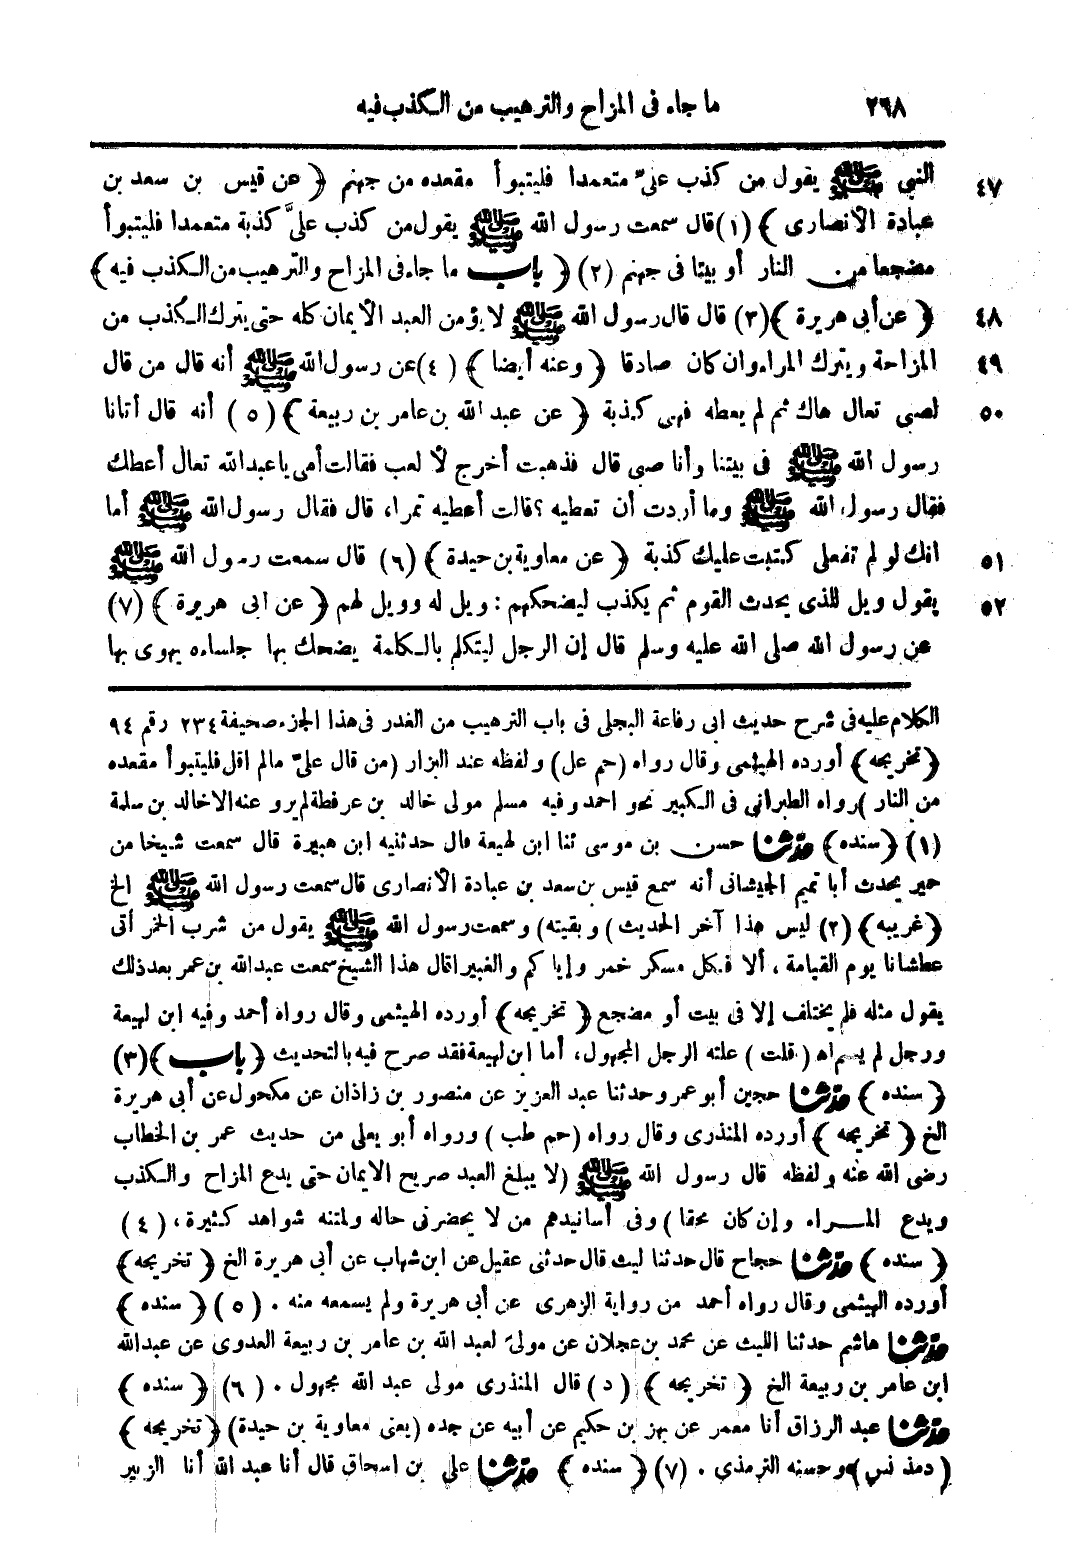 ٢٦٨ ما جاء فى المزاح والترهيب من الكذب فيه
٤٧ النبي ﷺ يقول من كذب علىّ متعمدا فليتبوأ مقعده من جهنم ﴿ عن قيس بن سعد بن
عبادة الأنصارى ﴾ (١) قال سمعت رسول الله ﷺ يقول من كذب علىَّ كذبة متعمدا فليتبوأ
مضجعا من النار أو بيتا فى جهنم (٢) ﴿ باب ما جاء فى المزاح والترهيب من الكذب فيه ﴾
٤٨ ﴿ عن أبى هريرة ﴾ (٣) قال قال رسول الله ﷺ لا يؤمن العبد الأيمان كله حتى يترك الكذب من
٤٩ المزاحة ويترك المراء وان كان صادقا ﴿ وعنه أيضا ﴾ (٤) عن رسول الله ﷺ أنه قال من قال
٥٠ لصبى تعال هاك ثم لم يعطه فهى كذبة ﴿ عن عبد الله بن عامر بن ربيعة ﴾ (٥) أنه قال أتانا
رسول الله ﷺ فى بيتنا وأنا صبى قال فذهبت أخرج لألعب فقالت أمى يا عبد الله تعال أعطك
فقال رسول الله ﷺ وما أردت أن تعطيه ؟ قالت أعطيه تمرا، قال فقال رسول الله ﷺ أما
٥١ انك لو لم تفعلى كتبت عليك كذبة ﴿ عن معاوية بن حيدة ﴾ (٦) قال سمعت رسول الله ﷺ
٥٢ يقول ويل للذى يحدث القوم ثم يكذب ليضحكهم : ويل له وويل لهم ﴿ عن ابى هريرة ﴾ (٧)
عن رسول الله صلى الله عليه وسلم قال إن الرجل ليتكلم بالكلمة يضحك بها جلساءه يهوى بها
الكلام عليه فى شرح حديث ابى رفاعة البجلى فى باب الترهيب من الغدر فى هذا الجزء صحيفة ٢٣٤ رقم ٩٤
﴿ تخريجه ﴾ أورده الهيثمى وقال رواه (حم عل) ولفظه عند البزار (من قال علىّ مالم اقل فليتبوأ مقعده
من النار ) رواه الطبرانى فى الكبير نحو احمد وفيه مسلم مولى خالد بن عرفطة لم يرو عنه الا خالد بن سلمة
(١) ﴿ سنده ﴾ حدثنا حسن بن موسى ثنا ابن لهيعة قال حدثنيه ابن هبيرة قال سمعت شيخا من
حمير يحدث أبا تميم الجيشانى أنه سمع قيس بن سعد بن عبادة الأنصارى قال سمعت رسول الله ﷺ الخ
﴿ غريبه ﴾ (٢) ليس هذا آخر الحديث ) وبقيته) وسمعت رسول الله ﷺ يقول من شرب الخمر أتى
عطشانا يوم القيامة ، ألا فكل مسكر خمر وإياكم والغبيرا قال هذا الشيخ سمعت عبد الله بن عمر بعد ذلك
يقول مثله فلم يختلف إلا فى بيت أو مضجع ﴿ تخريجه ﴾ أورده الهيثمى وقال رواه أحمد وفيه ابن لهيعة
ورجل لم يسم اه (قلت) علته الرجل المجهول، أما ابن لهيعة فقد صرح فيه بالتحديث ﴿ باب ﴾ (٣)
﴿ سنده ﴾ حدثنا حجين أبو عمر وحدثنا عبد العزيز عن منصور بن زاذان عن مكحول عن أبى هريرة
الخ ﴿ تخريجه ﴾ أورده المنذرى وقال رواه (حم طب) ورواه أبو يعلى من حديث عمر بن الخطاب
رضى الله عنه ولفظه قال رسول الله ﷺ (لا يبلغ العبد صريح الايمان حتى يدع المزاح والكذب
ويدع المراء وإن كان محقا ) وفى أسانيدهم من لا يحضرنى حاله ولمتنه شواهد كثيرة، (٤)
﴿ سنده ﴾ حدثنا حجاج قال حدثنا ليث قال حدثنى عقيل عن ابن شهاب عن أبى هريرة الخ ﴿ تخريجه ﴾
أورده الهيثمى وقال رواه أحمد من رواية الزهرى عن أبى هريرة ولم يسمعه منه . (٥) ﴿ سنده ﴾
حدثنا هاشم حدثنا الليث عن محمد بن عجلان عن مولىً لعبد الله بن عامر بن ربيعة العدوى عن عبد الله
ابن عامر بن ربيعة الخ ﴿ تخريجه ﴾ (د) قال المنذرى مولى عبد الله مجهول . (٦) ﴿ سنده ﴾
حدثنا عبد الرزاق أنا معمر عن بهز بن حكيم عن أبيه عن جده (يعنى معاوية بن حيدة) ﴿ تخريجه ﴾
(دمذ نس) وحسنه الترمذى . (٧) ﴿ سنده ﴾ حدثنا على بن اسحاق قال أنا عبد الله أنا الزبير